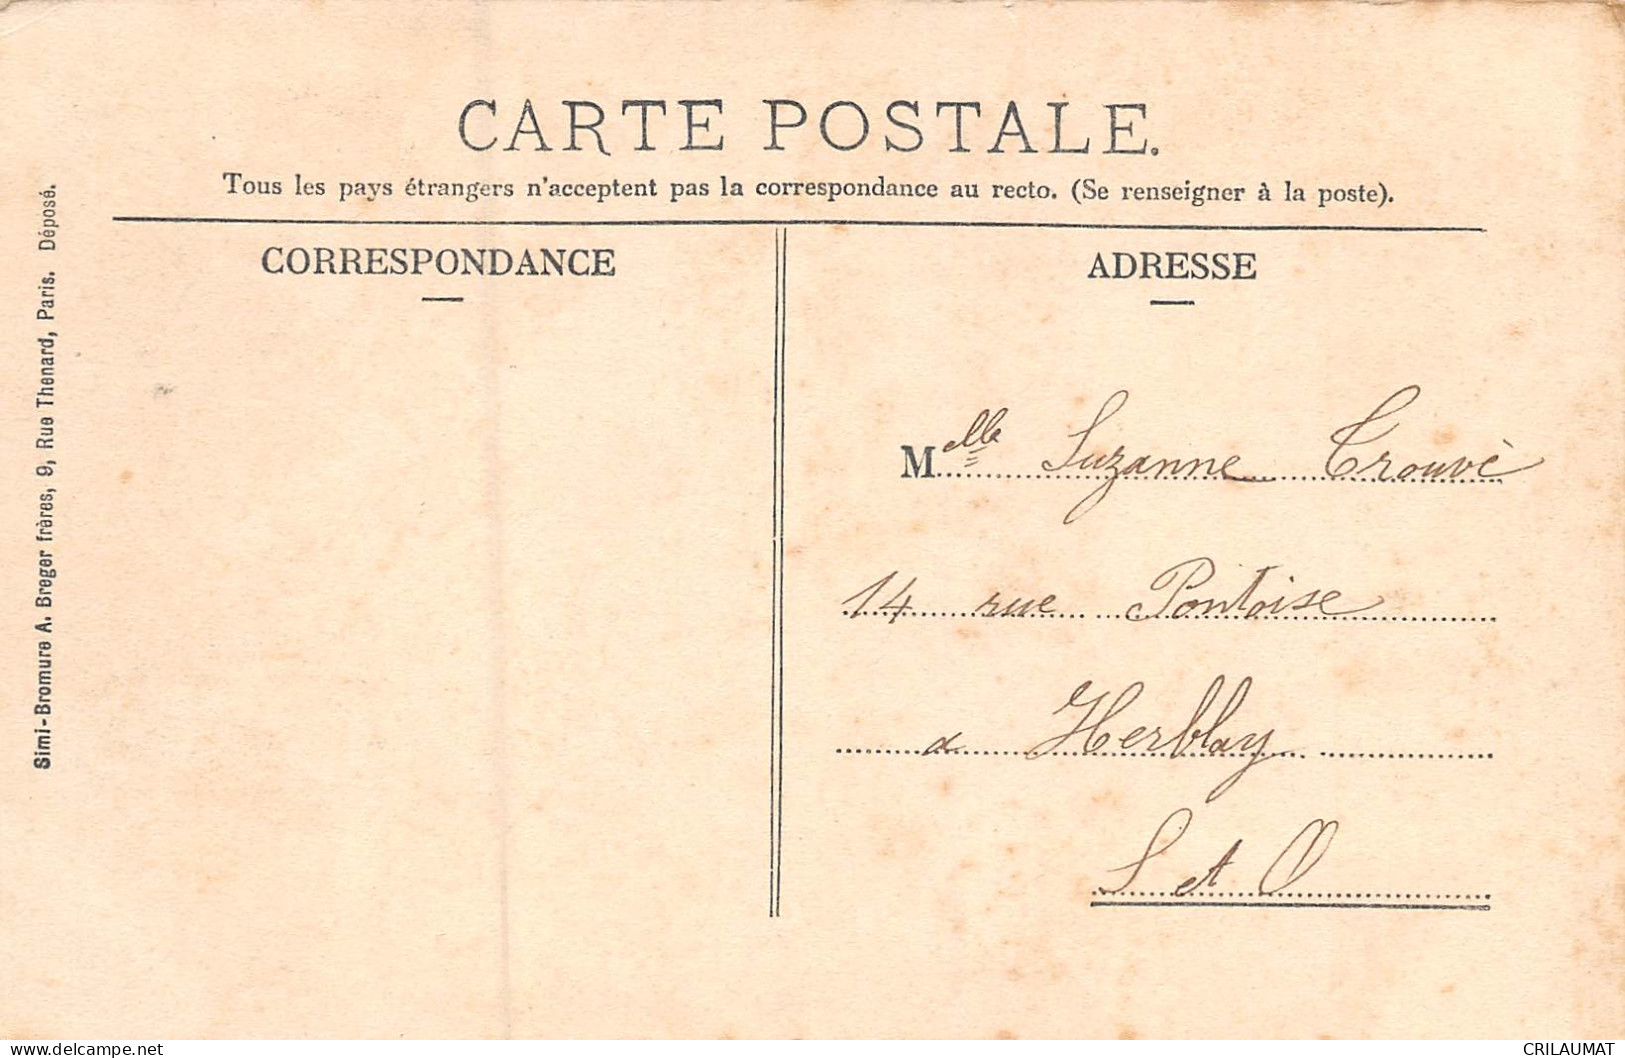 CARTE POSTALE.
Tous les pays étrangers n'acceptent pas la correspondance au recto. (Se renseigner à la poste).
CORRESPONDANCE
ADRESSE
Melle Suzanne Trouvè
14 rue Pontoise
a Herblay
S et O
Simi-Bromure A. Breger frères, 9, Rue Thenard, Paris. Déposé.
CRILAUMAT